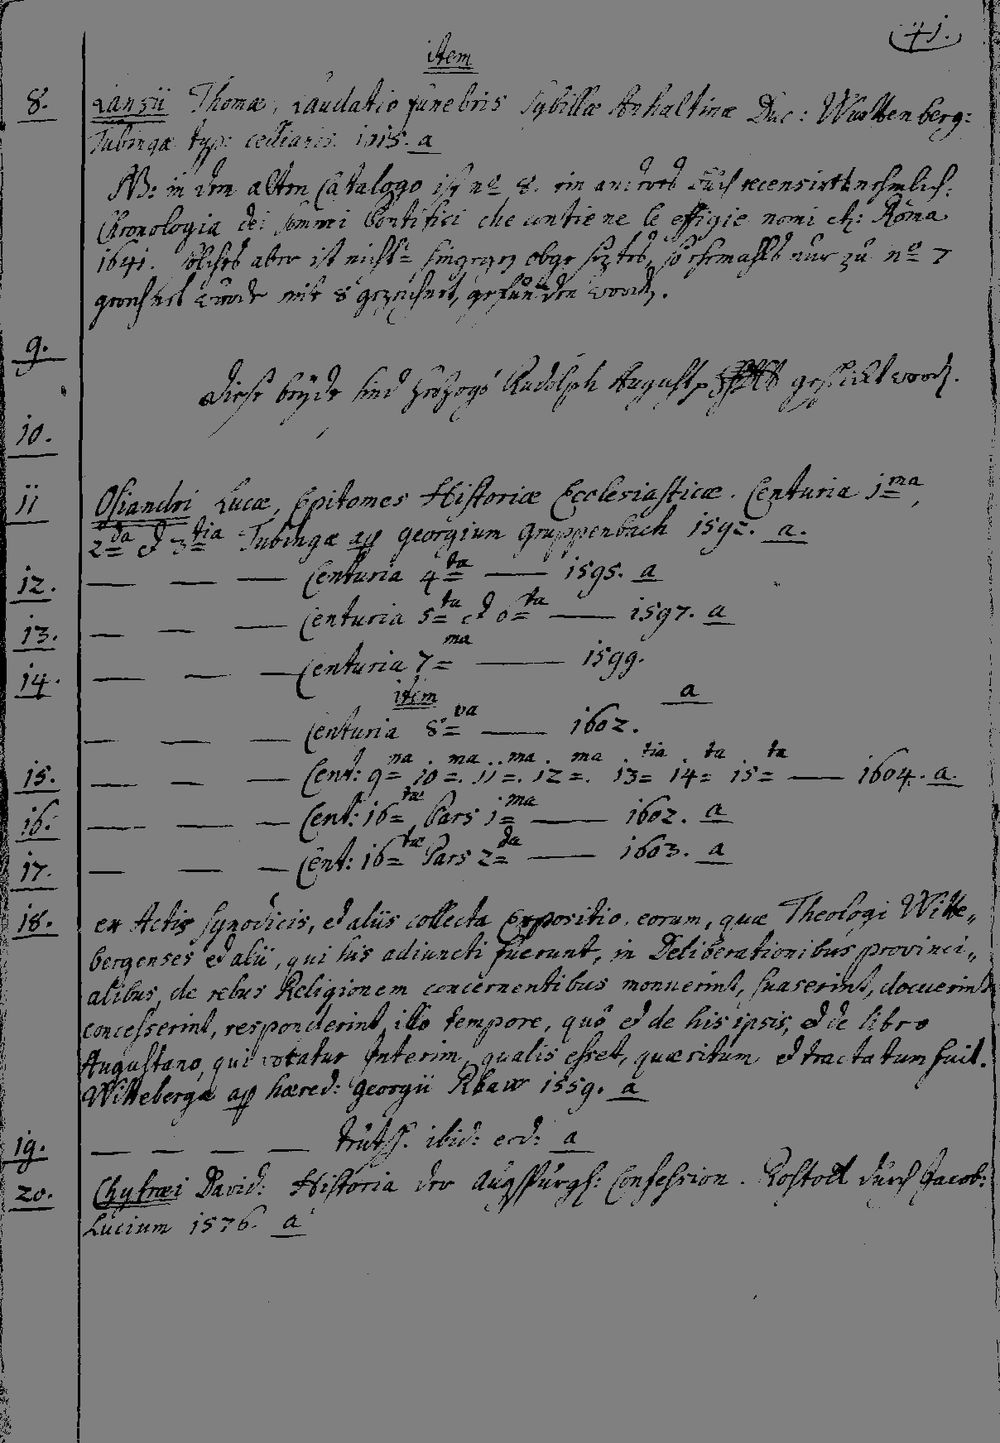 41.
item
8. Lansii Thomæ, Laudatio funebris Sybillæ Anhaltinæ Duc: Wurttenberg:
Tubingæ typ: celliaris. 1615. a
NB: in dem alten Catalogo ist no 8. ein anderes Buch recensirt nehmlich:
Chronologia de: sommi Pontifici che contiene le effigie nomi etc: Roma
1641. solches aber ist nicht= hingegen obgesetztes, so ehemahls nur zu no 7
gewesen wurde mit 8 gezeichnet, gefunden word.
9.
Diese beyde sind Herzogs Rudolph August geschickt word.
10.
11 Osiandri Lucæ, Epitomes Historiæ Ecclesiasticæ. Centuria 1ma,
2da et 3tia Tubingæ ap Georgium Gruppenbach 1592. a.
12. — — — Centuria 4ta — 1595. a
13. — — — Centuria 5ta et 6ta — 1597. a
14. — — — Centuria 7ma — 1599.
item a
— — — Centuria 8va — 1602.
15. — — — Cent: 9na. 10ma. 11ma. 12ma. 13tia 14ta 15ta — 1604. a.
16. — — — Cent: 16tæ Pars 1ma — 1602. a
17. — — — Cent: 16tæ Pars 2da — 1603. a
18. ex Actis synodicis, et aliis collecta Expositio eorum, quæ Theologi Witte„
bergenses et alii, qui his adiuncti fuerunt, in Deliberationibus provinci„
alibus, de rebus Religionem concernentibus monuerint, suaserint, docuerint
concesserint, responderint, illo tempore, quo et de his ipsis, et de libro
Augustano, qui votatur Interim, qualis esset, quæsitum et tractatum fuit.
Wittebergæ ap hæred: Georgii Rhaw 1559. a
19. — — — — teutsch. ibid: eod: a
20. Chytræi David: Historia der Augspurgs: Confession. Rostock durch Jacob:
Lucium 1576. a